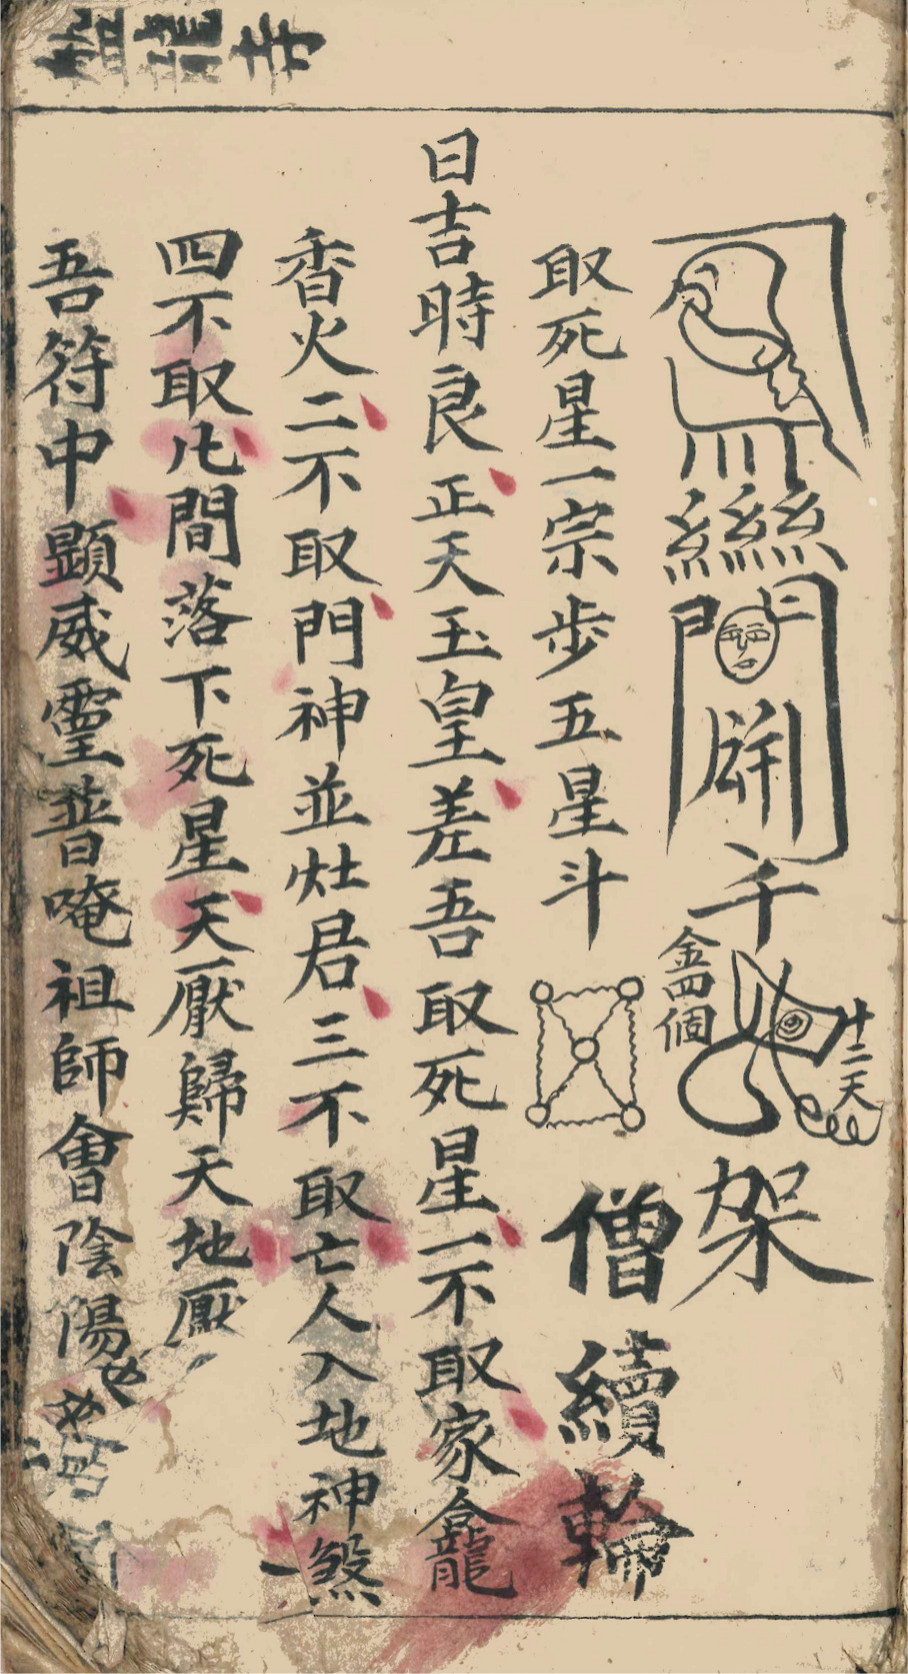 龍寺
千
金四個
十二天
架
僧續輪
取死星一宗步五星斗
日吉時良正天玉皇差吾取死星一不取家龕
香火二不取門神並灶君三不取亡人入地神煞
四不取凡間落下死星天厭歸天地厭
吾符中顯威靈普唵祖師會陰陽